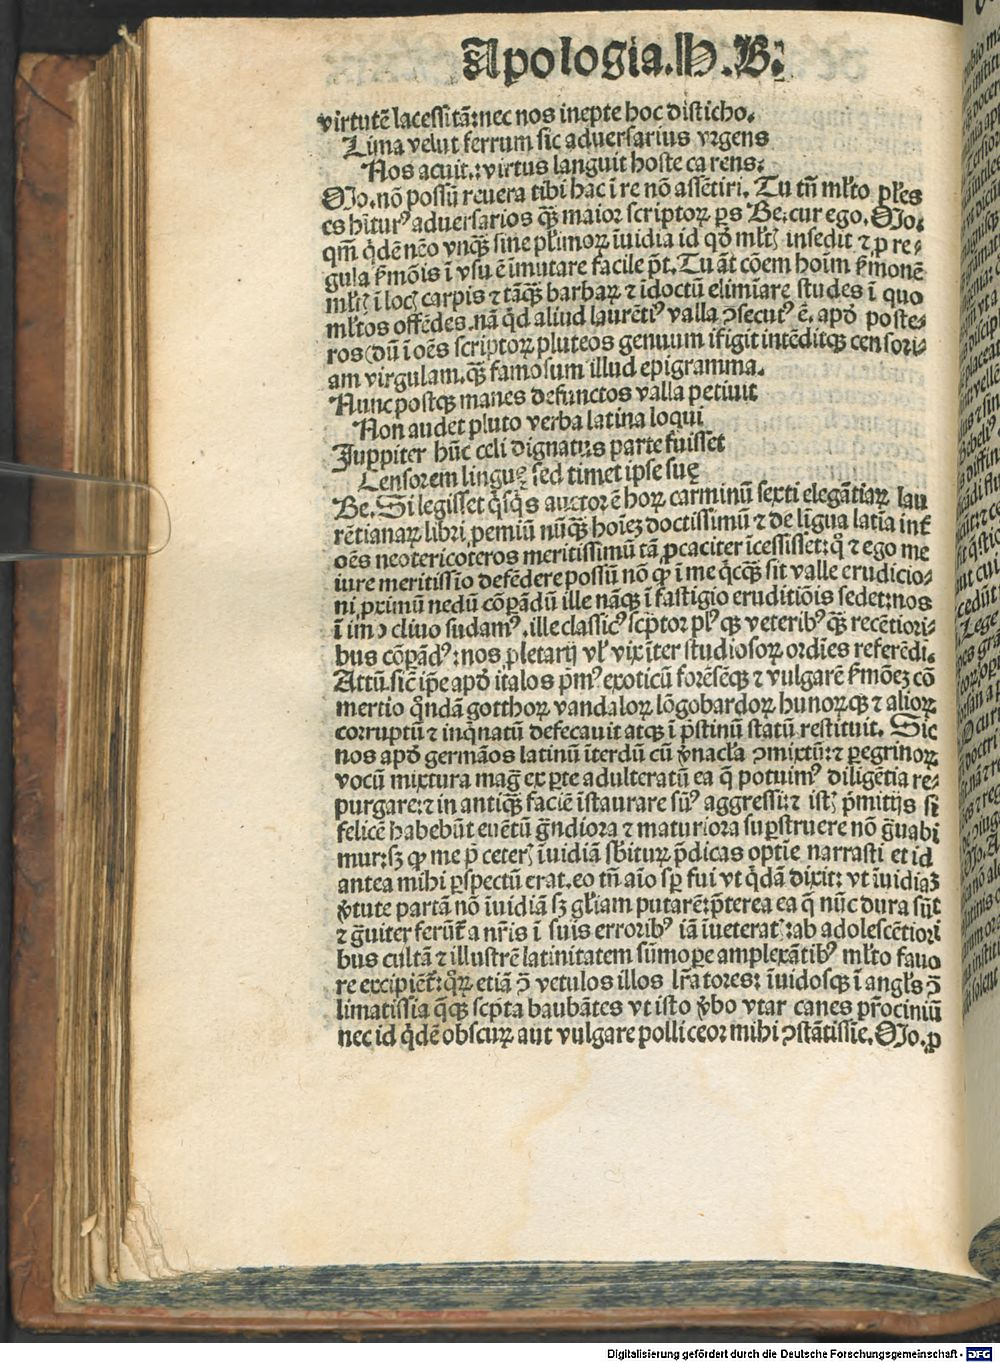 Apologia. H. B.
virtutē lacessitā: nec nos inepte hoc disticho.
Lima velut ferrum sic adversarius vrgens
Nos acuit.: virtus languit hoste carens:
Jo. nō possū revera tibi hac ī re nō assētiri. Tu tn̄ ml̕to pl̕es
es hīturꝰ adversarios qꝫ̄ maior scriptoꝝ ꝑs Be. cur ego. Jo.
qm̄ q̇dē nēo vnqꝫ̄ sine pl̕imoꝝ īuidia id qd̕ ml̕tꝭ insedit ⁊ ꝓ re-
gula s̕mōis ī vsu ē īmutare facile pt̄. Tu āt cōem hoīm s̕monē
ml̕tꝭ ī locꝭ carpis ⁊ tāqꝫ̄ barbaꝝ ⁊ īdoctū elimīare studes ī quo
ml̕tos offēdes. nā q̇d aliud laurētiꝰ valla ꝯsecutꝰ ē. apd̕ poste-
ros (dū ī oēs scriptoꝝ pluteos genuum īfigit intēditqꝫ censori-
am virgulam. qꝫ̄ famosum illud epigramma.
Nunc postqꝫ manes defunctos valla petiuit
Non audet pluto verba latina loqui
Iuppiter hūc celi dignatus parte fuisset
Censorem linguę sed timet ipse suę
Be. Si legisset q̇sq̇s auctor ē hoꝝ carminū sexti elegātiaꝝ lau
rētianaꝝ libri ꝓemiū nūqꝫ̄ hoīeꝫ doctissimū ⁊ de līgua latīa int̕
oēs neotericoteros meritissimū tā ꝓcaciter īcessisset: q̇ ⁊ ego me
iure meritissīo defēdere possū nō ꝙ ī me q̇cqꝫ̄ sit valle erudicio-
ni ꝓximū nedū cōꝑādū ille nāqꝫ ī fastigio eruditiōis sedet: nos
ī imo cliuo sudamꝰ. ille classicꝰ scp̄tor plꝰ qꝫ veteribꝰ qꝫ̄ recētiori-
bus cōꝑādꝰ: nos ꝓletarij vl̕ vix īter studiosoꝝ ordīes referēdi.
Attn̄. sic̄ ip̄e apd̕ italos pm̄ꝰ exoticū forēsēqꝫ ⁊ vulgarē s̕mōeꝫ cō
mertio q̇ndā gotthoꝝ vandaloꝝ lōgobardoꝝ hunoꝝqꝫ ⁊ alioꝝ
corruptū ⁊ inq̇natū defecauit atqꝫ ī p̄stinū statū restituit. Sic
nos apd̕ germāos latinū īterdū cū v̕nacl̕a ꝯmixtū: ⁊ ꝑegrinoꝝ
vocū mixtura maḡ ex ꝑte adulteratū ea q̄ potuimꝰ diligētia re-
purgare: ⁊ in antiqꝫ̄ faciē īstaurare sūꝰ aggressi: ⁊ istꝭ p̄mitijs si
felicē habebūt euētū g̅ndiora ⁊ maturiora suꝑstruere nō g̅uabi
mur: sꝫ ꝙ me p̄ ceterꝭ īuidiā sb̕iturꝝ p̄dicas optīe narrasti et id
antea mihi ꝑspectū erat. eo tn̄ aīo sꝑ fui vt q̇dā dixit: vt īuidiaꝫ
v̕tute partā nō īuidiā sꝫ gl̕iam putarē: p̄terea ea q̄ nūc dura sūt
⁊ g̅uiter ferūt̕ a nr̄is ī suis erroribꝰ iā īueteratꝭ: ab adolescētiori
bus cultā ⁊ illustrē latinitatem sūmoꝑe amplexātibꝰ ml̕to fauo
re excipiēt̕: q̇ꝝ etiā ꝯ̄ vetulos illos lr̄atores: īuidosqꝫ ī angl̕s ꝯ̄
limatissīa q̄qꝫ scp̄ta baubātes vt isto v̕bo vtar canes pr̄ociniū
nec id q̇dē obscuꝝ aut vulgare polliceor mihi ꝯstātissīe. Jo. ꝑ
Digitalisierung gefördert durch die Deutsche Forschungsgemeinschaft - DFG